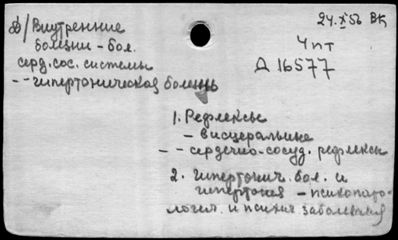 24.X 56 ВК
д/ Внутренние
болезни - бол.
серд. сос. системы
- - гипертоническая болезнь
4 пт
Д 16577
1. Рефлексы
- висцеральные
- - сердечно-сосуд. рефлексы
2. Гипертонич. бол. и
гипертония - психопато-
логич. и психич. заболевания